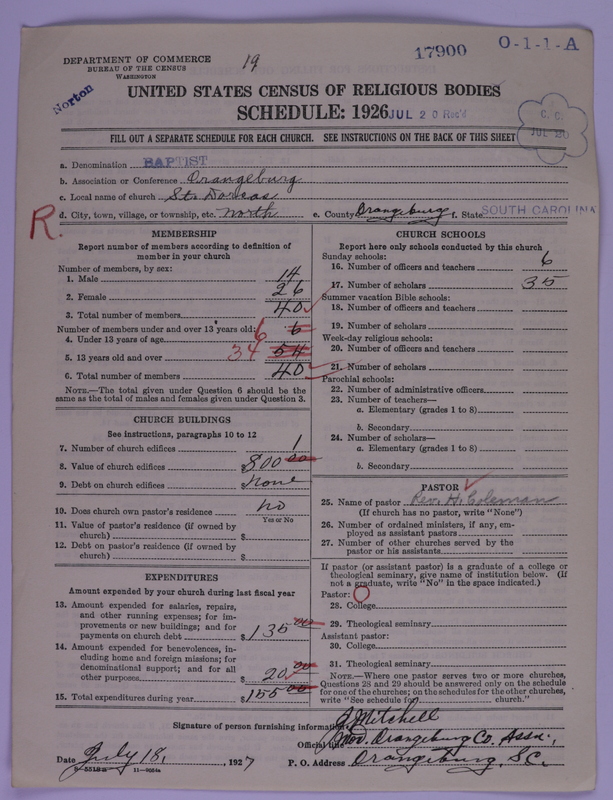 DEPARTMENT OF COMMERCE
BUREAU OF THE CENSUS
WASHINGTON
19
17900
O-1-1-A
Norton
UNITED STATES CENSUS OF RELIGIOUS BODIES
SCHEDULE: 1926
JUL 20 Rec'd
C. C.
JUL 20
FILL OUT A SEPARATE SCHEDULE FOR EACH CHURCH. SEE INSTRUCTIONS ON THE BACK OF THIS SHEET
a. Denomination BAPTIST
b. Association or Conference Orangeburg
c. Local name of church St. Dorcas
d. City, town, village, or township, etc. North e. County Orangeburg f. State SOUTH CAROLINA
R.
MEMBERSHIP
Report number of members according to definition of
member in your church
Number of members, by sex:
1. Male 14
2. Female 26
3. Total number of members 40
Number of members under and over 13 years old:
4. Under 13 years of age 6 6
5. 13 years old and over 34 54
6. Total number of members 40
NOTE.—The total given under Question 6 should be
the same as the total of males and females given under Question 3.
CHURCH BUILDINGS
See instructions, paragraphs 10 to 12
7. Number of church edifices 1
8. Value of church edifices $800 00
9. Debt on church edifices $None
10. Does church own pastor's residence no
Yes or No
11. Value of pastor's residence (if owned by
church) $
12. Debt on pastor's residence (if owned by
church) $
EXPENDITURES
Amount expended by your church during last fiscal year
13. Amount expended for salaries, repairs,
and other running expenses; for im-
provements or new buildings; and for
payments on church debt $135 00
14. Amount expended for benevolences, in-
cluding home and foreign missions; for
denominational support; and for all
other purposes 20 00
15. Total expenditures during year $155 00
CHURCH SCHOOLS
Report here only schools conducted by this church
Sunday schools:
16. Number of officers and teachers 6
17. Number of scholars 35
Summer vacation Bible schools:
18. Number of officers and teachers
19. Number of scholars
Week-day religious schools:
20. Number of officers and teachers
21. Number of scholars
Parochial schools:
22. Number of administrative officers
23. Number of teachers—
a. Elementary (grades 1 to 8)
b. Secondary
24. Number of scholars—
a. Elementary (grades 1 to 8)
b. Secondary
PASTOR
25. Name of pastor Rev. H. Coleman
(If church has no pastor, write "None")
26. Number of ordained ministers, if any, em-
ployed as assistant pastors
27. Number of other churches served by the
pastor or his assistants
If pastor (or assistant pastor) is a graduate of a college or
theological seminary, give name of institution below. (If
not a graduate, write "No" in the space indicated.)
Pastor:
28. College
29. Theological seminary
Assistant pastor:
30. College
31. Theological seminary
NOTE.—Where one pastor serves two or more churches,
Questions 28 and 29 should be answered only on the schedule
for one of the churches; on the schedules for the other churches,
write "See schedule for church."
Signature of person furnishing information Mitchell
Official title Mod. Orangeburg Co. Assn.,
Date July 18, 1927 P. O. Address Orangeburg, S.C.
11—9084a